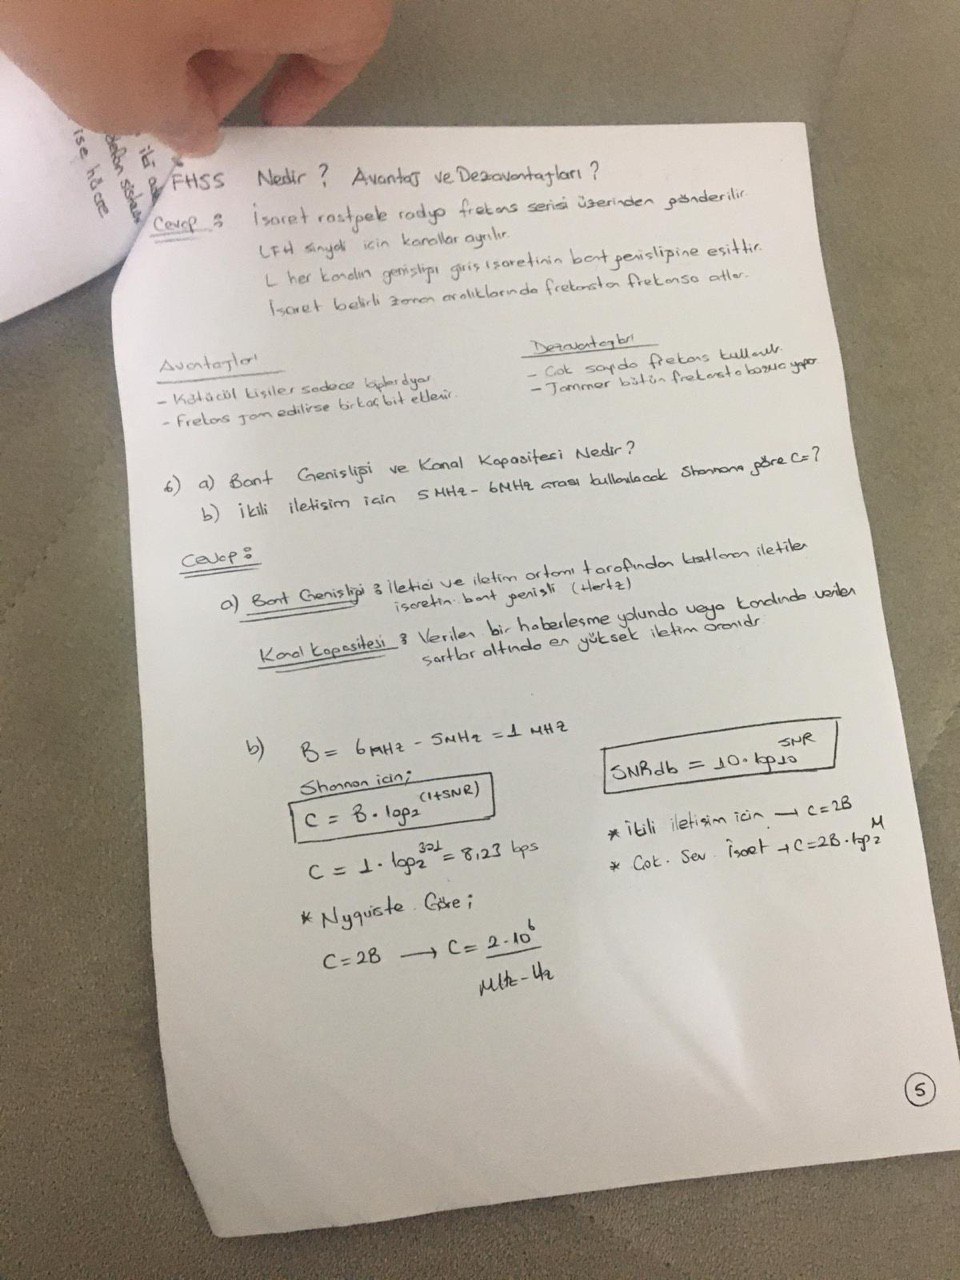 ise hücre
iki
FHSS Nedir? Avantaj ve Dezavantajları?
Cevap: İşaret rastgele radyo frekans serisi üzerinden gönderilir.
FH sinyali için kanallar ayrılır.
her kanalın genişliği giriş işaretinin bant genişliğine eşittir.
İşaret belirli zaman aralıklarında frekanstan frekansa atlar.
Avantajları
Dezavantajları
- Kötücül kişiler sadece bipler duyar
- Çok sayıda frekans kullanılır.
- Frekans jam edilirse birkaç bit etkilenir.
- Jammer bütün frekansta bozucu yapar
6) a) Bant Genişliği ve Kanal Kapasitesi Nedir?
b) İkili iletişim için 5 MHz - 6 MHz arası kullanılacak Shannona göre C=?
Cevap:
a) Bant Genişliği : İletici ve iletim ortamı tarafından kısıtlanan iletilen
işaretin bant genişli (Hertz)
Kanal Kapasitesi : Verilen bir haberleşme yolunda veya kanalında verilen
şartlar altında en yüksek iletim oranıdır
b) B = 6 MHz - 5 MHz = 1 MHz
SNRdb = 10.log10 SNR
Shannon için;
C = B.log2 (1+SNR)
* İkili iletişim için → C=2B
C = 1.log2 321 = 8,23 bps
* Çok. Sev. İşaret → C=2B.log2 M
* Nyquiste Göre;
C=2B → C= 2.10^6
MHz-Hz
5